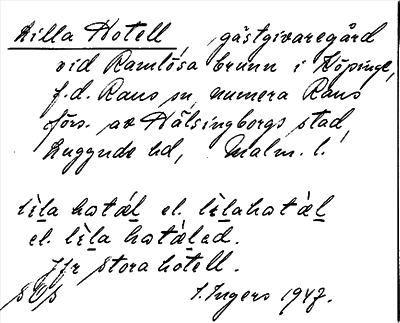 Lilla Hotell, gästgivaregård
vid Ramlösa brunn i Köpinge,
f.d. Raus sn, numera Raus
förs. av Hälsingborgs stad,
Luggude hd, Malm. l.
lila hotäl el. lilahotäl
el. lila hotäled.
Jfr Stora hotell.
I. Ingers 1947.